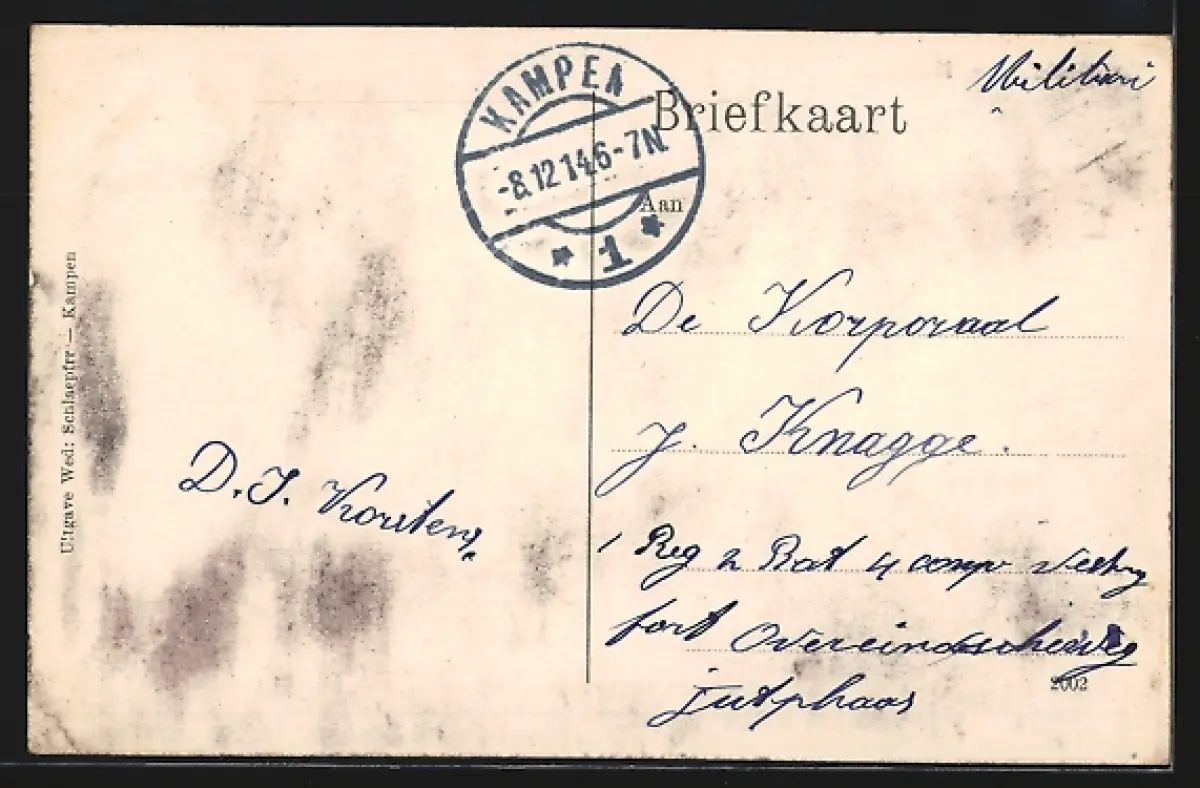 Militair
KAMPEN
-8.12 14 6-7N.
1
Briefkaart
Aan
De Korporaal
J. Knagge.
1 Reg 2 Bat 4 comp
fort Overeindscheweg
jutphaas
D. J. Korsten
Uitgave Wed: Schlaepfer — Kampen
2002